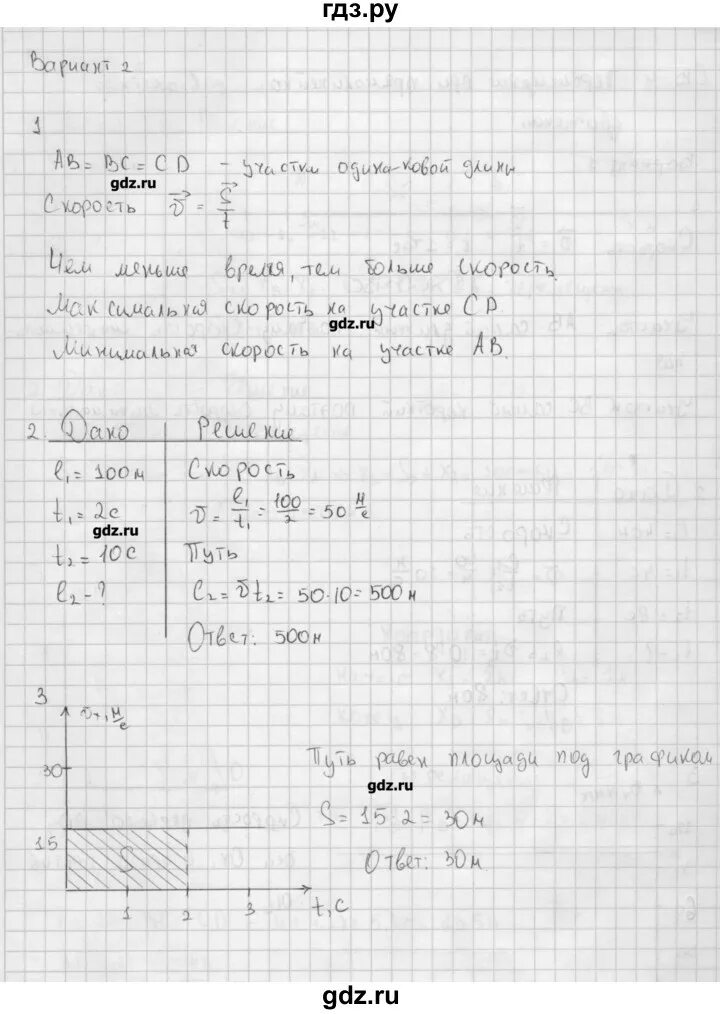 гдз.ру
Вариант 2
1
AB = BC = CD – участки одина-ковой длины
gdz.ru
Скорость v = S/t
Чем меньше время, тем больше скорость.
Максимальная скорость на участке CD.
gdz.ru
Минимальная скорость на участке AB.
2. Дано Решение
l₁ = 100м Скорость
t₁ = 2с v = l₁/t₁ = 100/2 = 50 м/с
gdz.ru
t₂ = 10с Путь
l₂ - ? l₂ = vt₂ = 50·10 = 500м
Ответ: 500м
3
м/с
30
Путь равен площади под графиком
gdz.ru
S = 15·2 = 30м
15
S
Ответ: 30м.
1 2 3 t, с
gdz.ru